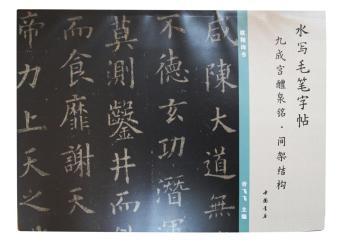 水写毛笔字帖
九成宫醴泉铭·间架结构
中国书店
欧阳询书
飞飞 主编
咸陳大道無
不德玄功潛
莫測鑿井而
而食靡謝天
帝力上天之